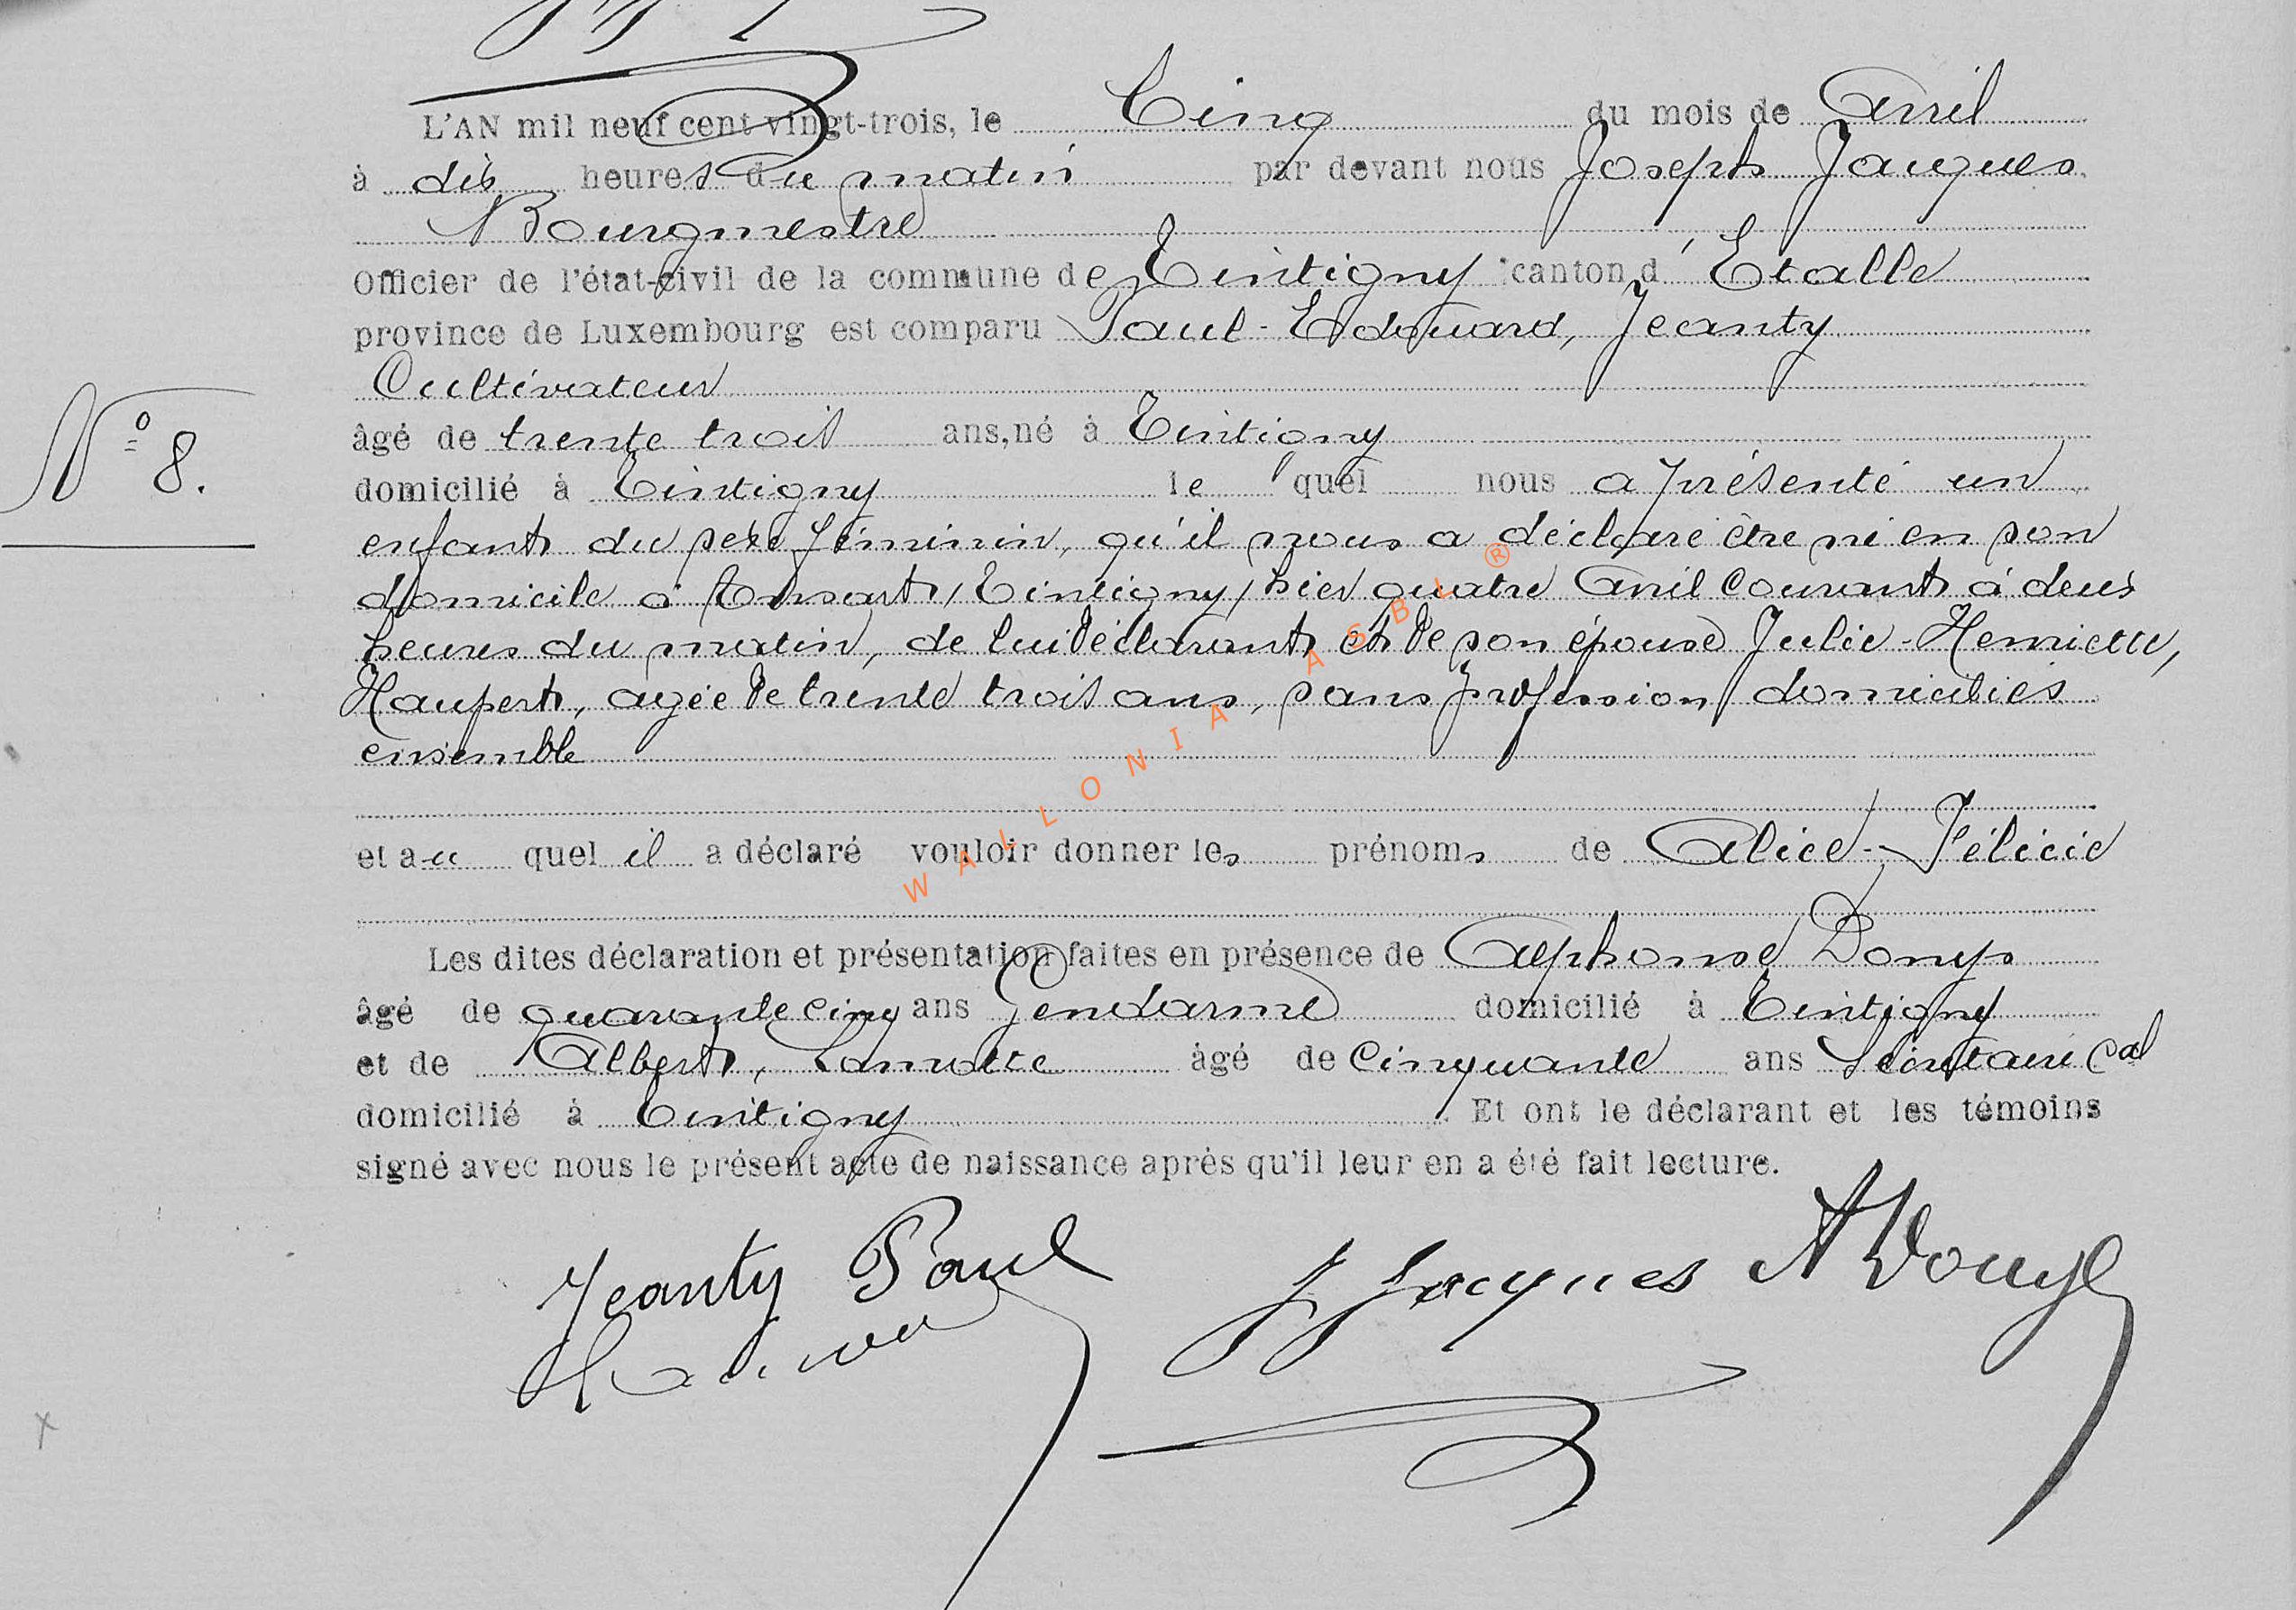 L'AN mil neuf cent vingt-trois, le Cinq du mois de Avril
à dix heures du matin par devant nous Joseph Jacques,
Bourgmestre
Officier de l'état-civil de la commune de Tintigny canton d'Etalle
province de Luxembourg est comparu Paul-Edouard, Jeanty
Cultivateur
âgé de trente trois ans, né à Tintigny
N° 8.
domicilié à Tintigny le quel nous a présenté un
enfant du sexe féminin, qu'il nous a déclaré être né en son
domicile à Ansart, (Tintigny) hier quatre Avril Courant à deux
heures du matin, de lui déclarant et de son épouse Julie-Henriette,
Haupert, agée de trente trois ans, sans profession domiciliés
ensemble
et au quel il a déclaré vouloir donner les prénoms de Alice-Félicie
Les dites déclaration et présentation faites en présence de Alphonse
âgé de quarante cinq ans Gendarme domicilié à Tintigny
et de Albert, Lamotte âgé de Cinquante ans Secrétaire Cal
domicilié à Tintigny. Et ont le déclarant et les témoins
signé avec nous le présent acte de naissance après qu'il leur en a été fait lecture.
Jeanty Paul J Jacques
WALLONIA ASBL ®